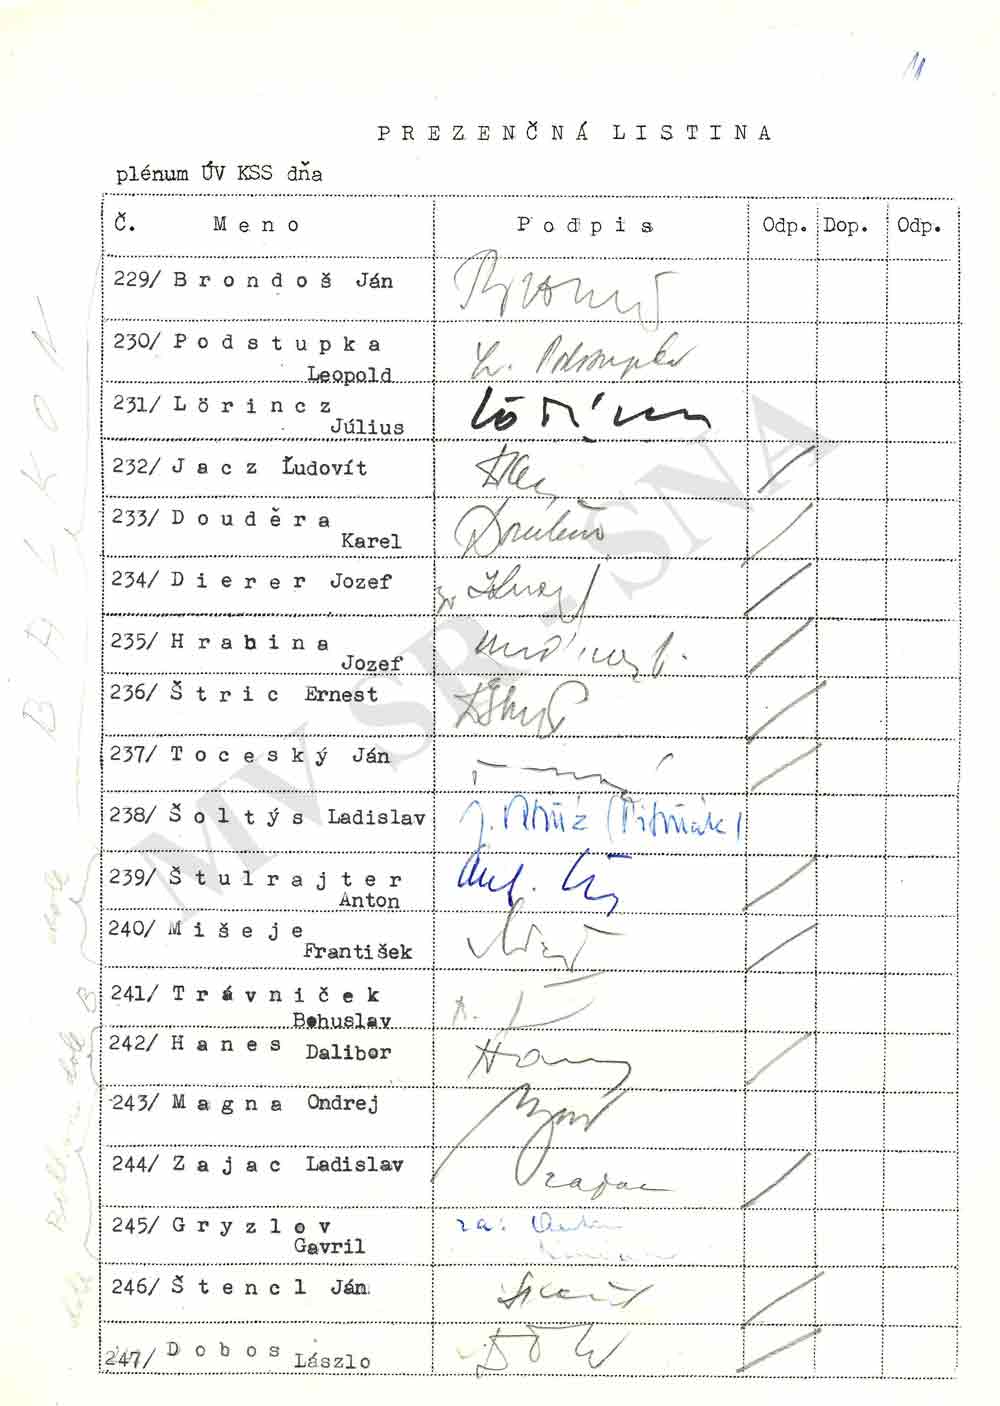 11
PREZENČNÁ LISTINA
plénum ÚV KSS dňa
Č. Meno Podpis Odp. Dop. Odp.
229/ Brondoš Ján
230/ Podstupka
Leopold
L. Podstupka
231/ Lörincz
Július
Lörincz
232/ Jacz Ľudovít
233/ Douděra
Karel
Douděra
234/ Dierer Jozef
235/ Hrabina
Jozef
236/ Štric Ernest
237/ Toceský Ján
238/ Šoltýs Ladislav
239/ Štulrajter
Anton
Ant.
240/ Mišeje
František
241/ Trávniček
Bohuslav
242/ Hanes Dalibor
Hanes
243/ Magna Ondrej
244/ Zajac Ladislav
Zajac
245/ Gryzlov
Gavril
za:
246/ Štencl Ján
247/ Dobos
László
BALKON
MV SR - SNA